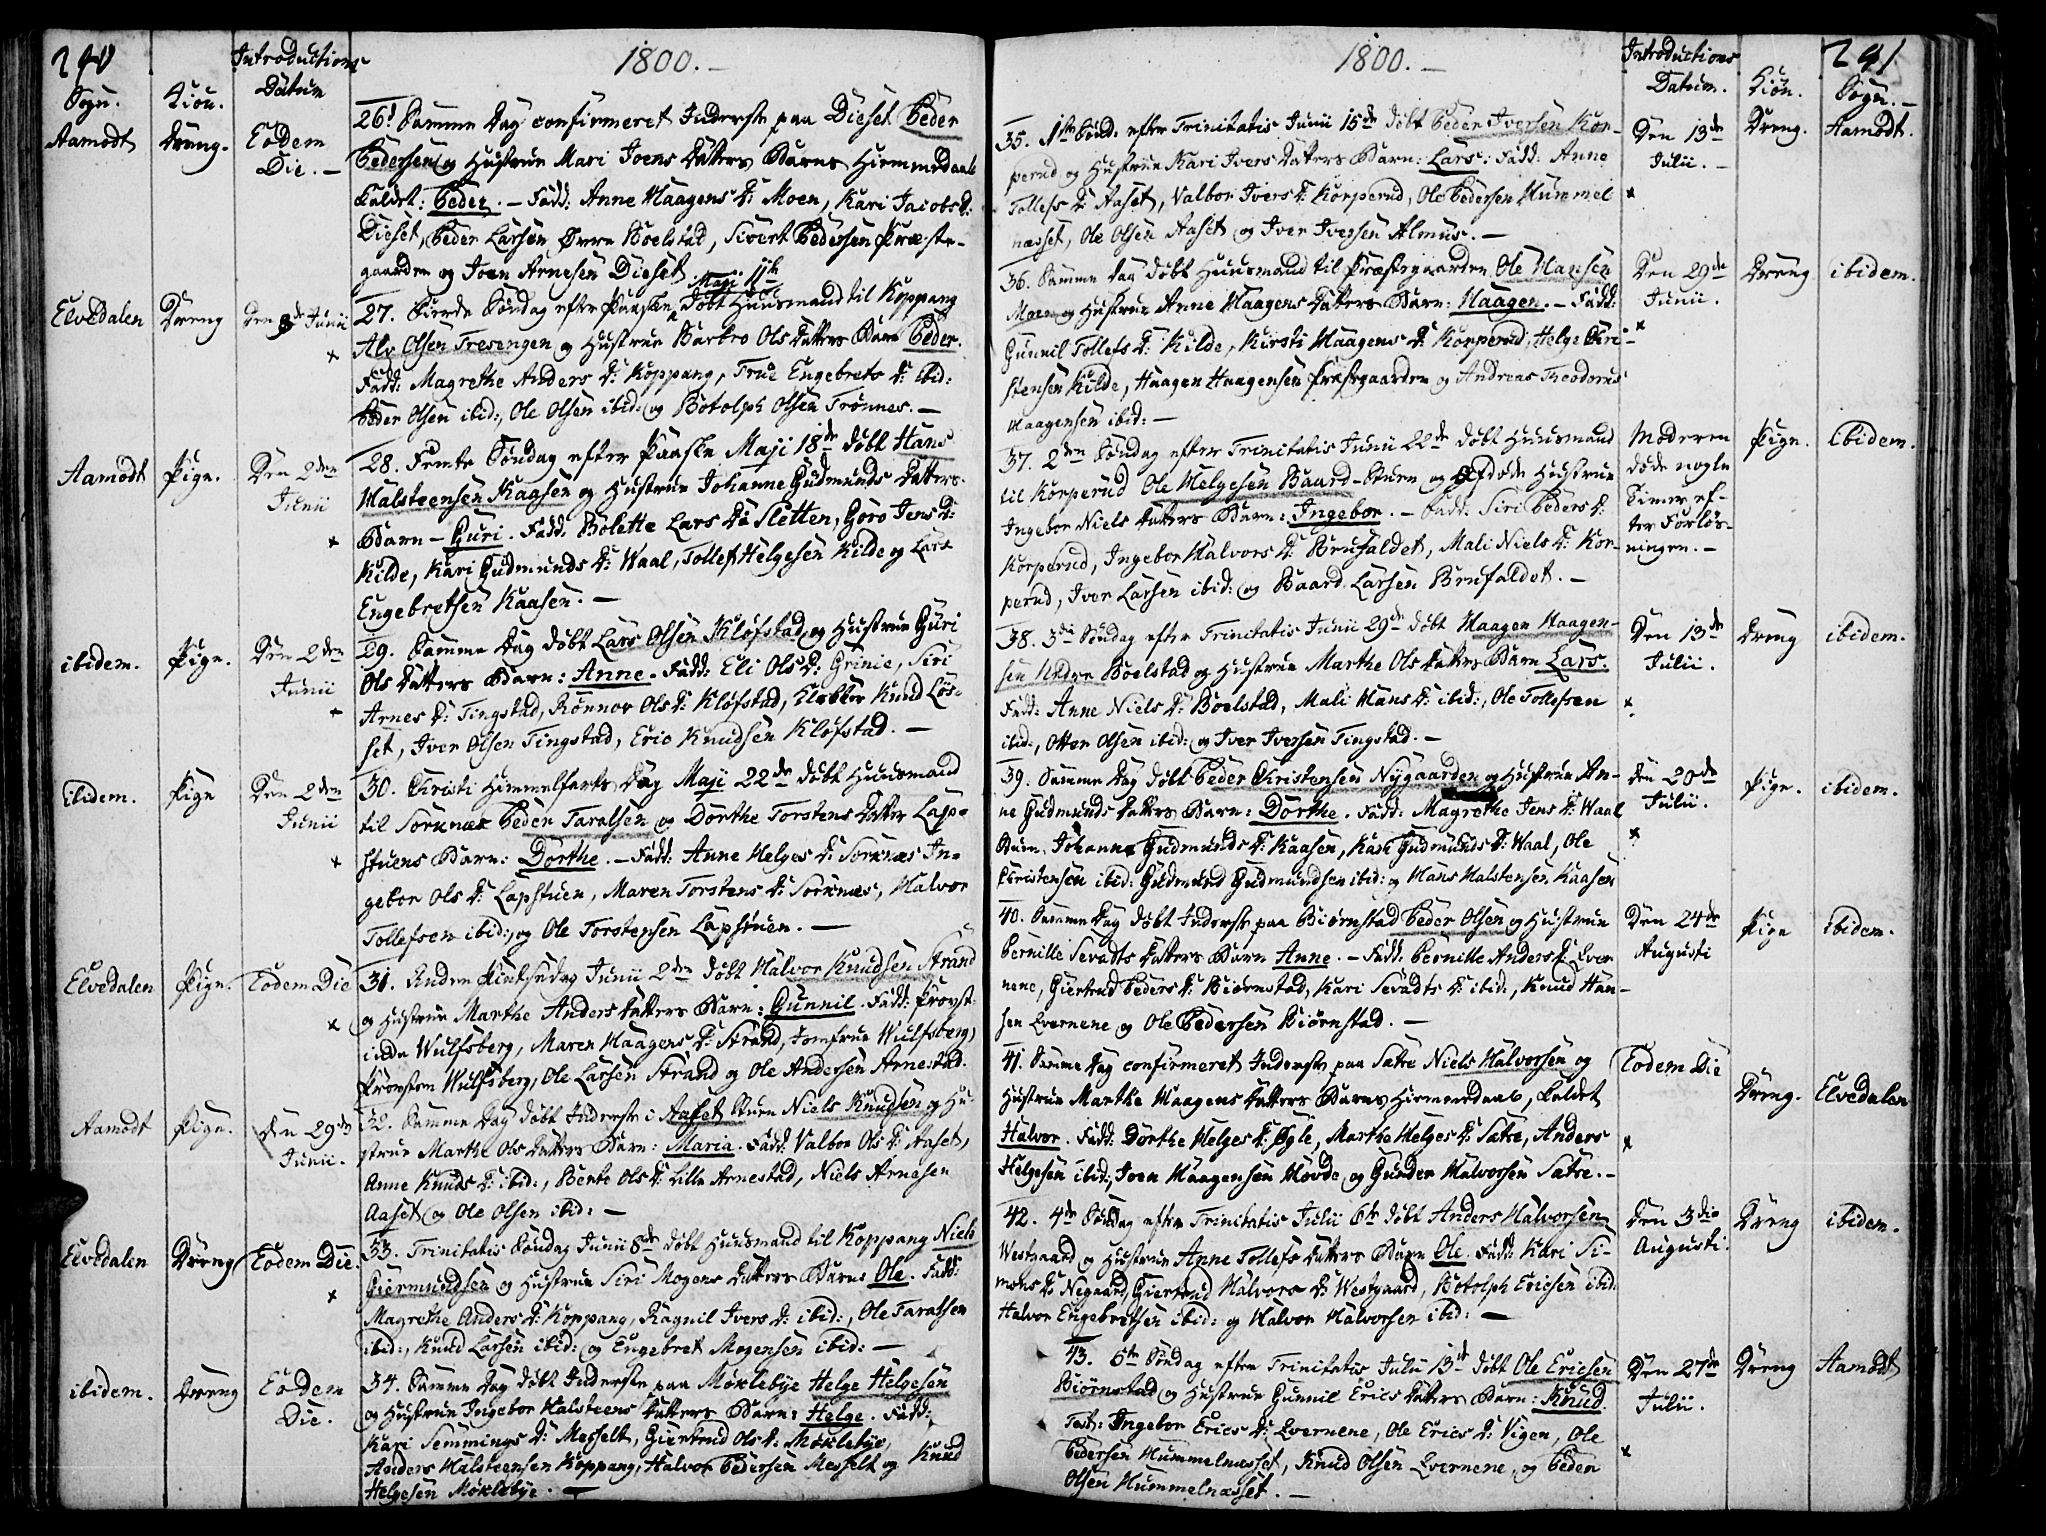 240
Introductions
Datum
1800.-
Sogn.
Kiön.
Aamodt
Dreng.
Eodem
Die.-
26. Samme Dag confirmeret Inderste paa Dieset Peder
Pedersen og Hustrue Mari Joens Datters Barns Hiemmedaab
kaldt: Peder. - Fadd: Anne Haagens D: Moen, Kari Jacobs D:
Dieset, Peder Larsen Øvre Boelstad, Sivert Pedersen Præste-
gaarden og Joen Arnesen Dieset.
Elvedalen
Dreng
Den 8de Junii
x
Maji 11te
27. Fierde Søndag efter Paaske, døbt Huusmand til Koppang
Alv Olsen Tresengen og Hustrue Barbro Ols Datters Barn Peder.
Fadd: Magrethe Anders D: Koppang, True Engebrets D: ibid:
Peder Olsen ibid:, Ole Olsen ibid: og Botolph Olsen Trønnes. -
Aamodt
Pige.
Den 2den
Junii
x
28. Femte Søndag efter Paaske Maji 18de døbt Hans
Halsteensen Kaasen og Hustrue Johanne Gudmunds Datters
Barn - Guri. Fadd: Bolette Lars D: Sletten, Goro Jens D:
Kilde, Kari Gudmunds D: Waal, Tollef Helgesen Kilde og Lars
Engebretsen Kaasen. -
ibidem.
Pige.
Den 2den
Junii
29. Samme Dag døbt Lars Olsen Kløfstad og Hustrue Guri
Ols Datters Barn: Anne. Fadd: Eli Ols D: Grinie, Siri
Arnes D: Tingstad, Rönnov Ols D: Kløfstad, Klokker Knud Løs-
set, Iver Olsen Tingstad, Eric Knudsen Kløfstad. -
ibidem.
Pige
Den 2den
Junii
x
30. Christi Himmelfarts Dag Maji 22de døbt Huusmand
til Sorknæs Peder Taralsen og Dorthe Torstens Datter Lap-
stuens Barn: Dorthe. - Fadd: Anne Helges D: Sorknæs In-
gebor Ols D: Lapstuen, Maren Torstens D: Sorknæs, Halvor
Tollefsen ibid:, og Ole Torstensen Lapstuen. -
Elvedalen
Pige.
Eodem Die
x
31. Anden Pintsedag Junii 2den døbt Halvor Knudsen Strand
og Hustrue Marthe Anders Datters Barn: Gunnil. Fadd: Provst-
inde Wulfsberg, Maren Haagens D: Strand, Jomfrue Wulfsberg,
Provsten Wulfsberg, Ole Larsen Strand og Ole Andersen Arnestad.
Aamodt
Pige.
Den 29de
Junii.
32. Samme Dag døbt Inderste i Aaset Stuen Niels Knudsen og Hu-
strue Marthe Ols Datters Barn: Maria. Fadd: Valbor Ols D: Aaset,
Anne Knuds D: ibid:, Berte Ols D: Lille Arnestad, Niels Arnesen
Aaset og Ole Olsen ibid: -
Elvedalen
Dreng
Eodem Die.
x
33. Trinitatis Søndag Junii 8de døbt Huusmand til Koppang Niels
Giermundsen og Hustrue Siri Mogens Datters Barn Ole. Fadd:
Magrethe Anders D: Koppang, Ragnil Ivers D: ibid:, Ole Taralsen
ibid:, Knud Larsen ibid: og Engebret Mogensen ibid: -
ibidem.
Dreng
Eodem
Die.
34. Samme Dag døbt Inderste paa Møklebye Helge Helgesen
og Hustrue Ingebor Halsteens Datters Barn: Helge. Fadd:
Kari Semmings D: Messelt, Giertrud Ols D: Møklebye,
Anders Halsteensen Koppang, Halvor Pedersen Messelt og Knud
Helgesen Møklebye. -
1800.-
Introductions
Datum.
Kiön.
241
Sogn.-
35. 1ste Sønd: efter Trinitatis Junii 15de døbt Peder Iversen Kor-
perud og Hustrue Kari Ivers Datters Barn: Lars: Fadd: Anne
Tollefs D: Aaset, Valbor Ivers D: Korperud, Ole Pedersen Hummel
næsset, Ole Olsen Aaset og Iver Iversen Almus. -
Den 13de
Julii. -
x
Dreng.
Aamodt.
36. Samme Dag døbt Huusmand til Præstegaarden Ole Hansen
Moen og Hustrue Anne Haagens Datters Barn: Haagen. - Fadd:
Gunnil Tollefs D: Kilde, Kirsti Haagens D: Korperud, Helge Chri-
stensen Kilde, Haagen Haagensen Præstegaarden og Andreas Theodorus
Haagensen ibid: -
Den 29de
Junii.
x
Dreng
ibidem.
37. 2den Søndag efter Trinitatis Junii 22de døbt Huusmand
til Korperud Ole Helgesen Baard-Stuen og Afdøde Hustrue
Ingebor Niels Datters Barn: Ingebor. - Fadd: Siri Peders D:
Korperud, Ingebor Halvors D: Brufaldet, Mali Niels D: Kor-
perud, Iver Larsen ibid: og Baard Larsen Brufaldet. -
Moderen
døde nogle
Timer ef-
ter Forløs-
ningen. -
Pige.
Ibidem.
38. 3die Søndag efter Trinitatis Junii 29de døbt Haagen Haagen-
sen Nedre Boelstad og Hustrue Marthe Ols Datters Barn Lars.
Fadd: Anne Niels D: Boelstad, Mali Hans D: ibid:, Ole Tollefsen
ibid:, Otter Olsen ibid: og Iver Iversen Tingstad. -
Den 13de
Julii.
x
Dreng
ibidem.
39. Samme Dag døbt Peder Christensen Nygaarden og Hustrue An-
ne Gudmunds Datters Barn: Dorthe. Fadd: Magrethe Jens D: Waal
Stuen, Johanne Gudmunds D: Kaasen, Kari Gudmunds D: Waal, Ole
Christensen ibid: Gudmund Gudmundsen ibid: og Hans Halstensen Kaasen
Den 20de
Julii.
x
Pige.
ibidem.
40. Samme Dag døbt Inderste paa Biørnstad Peder Olsen og Hustrue
Pernille Sevadts Datters Barn Anne. - Fadd: Pernille Anders D: Ever-
nene, Giertrud Peders D: Biørnstad, Kari Sevadts D: ibid:, Knud Han-
sen Evernene og Ole Pedersen Biørnstad. -
Den 24de
Augusti
Pige
ibidem.
41. Samme Dag confirmeret Inderste paa Sætre Niels Halvorsen og
Hustrue Marthe Haagens Datters Barns Hiemmedaab, kaldet
Halvor. Fadd: Dorthe Helges D: Øgle, Marthe Helges D: Sætre, Anders
Helgesen ibid:, Joen Haagensen Hovde og Gunder Halvorsen Sætre. -
Eodem Die
x
Dreng.
Elvedalen
42. 4de Søndag efter Trinitatis Julii 6te døbt Anders Halvorsen
Westgaard og Hustrue Anne Tollefs Datters Barn Ole. Fadd: Kari Si-
mens D: Negaard, Giertrud Halvors D: Westgaard, Botolph Ericsen ibid:
Halvor Engebretsen ibid: og Halvor Halvorsen ibid: -
Den 3die
Augusti.
Dreng
ibidem.
43. 5te Søndag efter Trinitatis Julii 13de døbt Ole Ericsen
Biørnstad og Hustrue Gunnil Erics Datters Barn: Knud.
Test: Ingebor Erics D: Evernene, Ole Erics D: Vigen, Ole
Pedersen Hummelnæsset, Knud Olsen Evernene, og Peder
Olsen Hummelnæsset. -
Den 27de
Julii.
x
Dreng
Aamodt